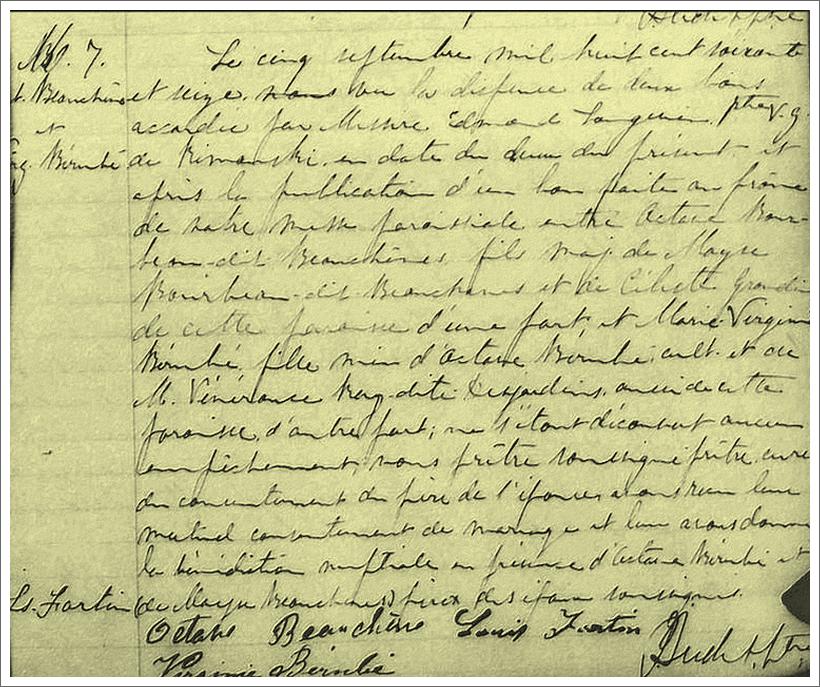 No. 7.
Le cinq septembre mil huit cent soixante
Beauchêne et seize, nous vu la dispense de deux bans
et accordée par Messire Edmond Langevin, ptre v. g.
Bérubé de Rimouski, en date du deux du présent et
après la publication d'un ban faite au prône
de notre messe paroissiale entre Octave Bour-
beau-dit-Beauchênes, fils maj. de Moyse
Bourbeau-dit-Beauchenes et de Céleste Grondin
de cette paroisse d'une part, et Marie Virginie
Bérubé, fille min d'Octave Bérubé, cult. et de
M. Vénérance Roy-dite Desjardins, aussi de cette
paroisse, d'autre part; ne s'étant découvert aucun
empêchement, nous prêtre soussigné prêtre, curé
du consentement du père de l'épouse avons reçu leur
mutuel consentement de mariage et leur avons donné
la bénédiction nuptiale en présence d'Octave Bérubé et
Ls. Fortin (de Moyse Beauchenes) pères des époux soussignés.
Octave Beauchêne Louis Fortin
Virginie Bérubé